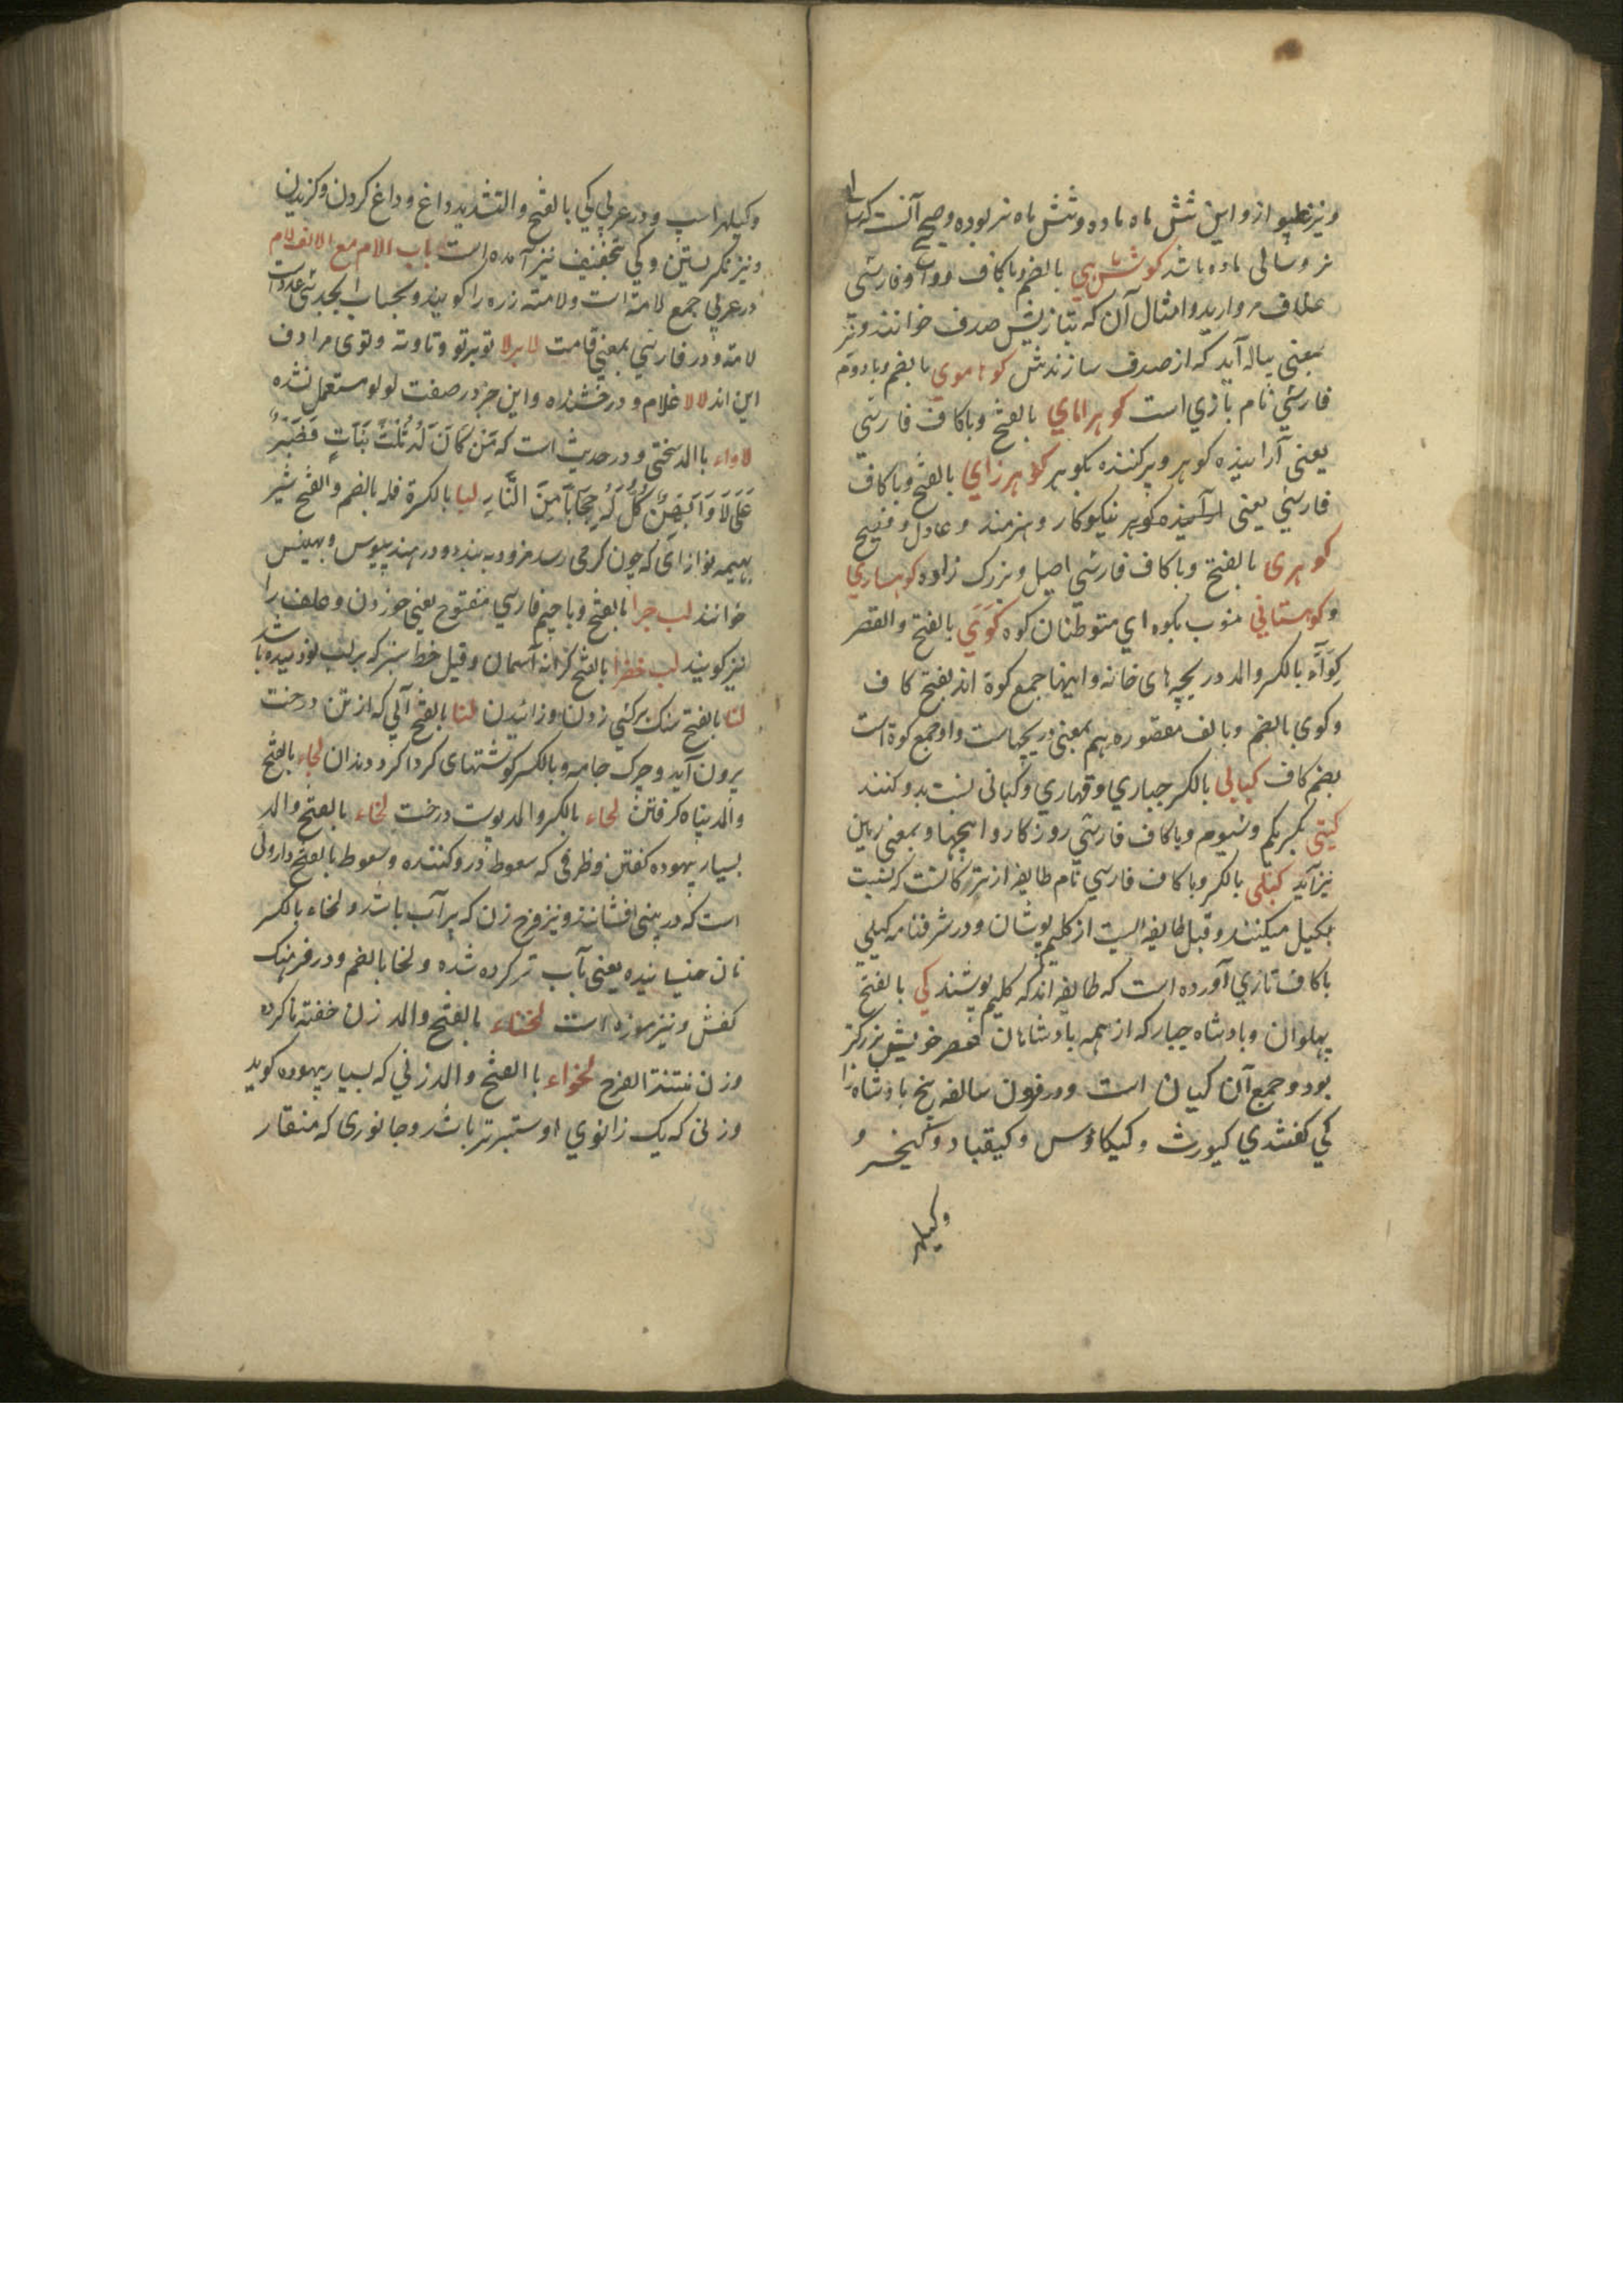 ونیز غلیواز و این شش ماه ماده و شش ماه نر بوده و صحیح آنست که سالی
نر و سالی ماده باشد کوش ماهی بالضم و باکاف و واو فارسی
غلاف مروارید و امثال آن که بتازیش صدف خوانند و نیز
بمعنی پیاله آید که از صدف سازندش کوهاموی بالضم و با دوم
فارسی نام بازی است کوهرامای بالفتح و باکاف فارسی
یعنی آراینده کوهر و پرکننده بکوهر کوهرزای بالفتح و باکاف
فارسی یعنی کوهر نیکوکار و هنرمند و عادل و فصیح
کوهری بالفتح و باکاف فارسی اصیل و بزرک زاده کوهساری
و کوهستانی منسوب بکوه ای متوطنان کوه کوی بالفتح والقصر
کواء بالکسر والمد دریچه های خانه و اینها جمع کوة اند بفتح کاف
و کوی بالضم و بالف مقصوره هم بمعنی دریچهاست و او جمع کوة است
بضم کاف کیایی بالکسر جباری و قهاری و کیانی نسبت بدو کنند
کیتی بکسر یکم و سیوم و باکاف فارسی روزکار و اینجها و بمعنی زمین
نیز آید کیلی بالکسر و باکاف فارسی نام طایفه از ترکانست که نسبت
بکیل میکنند و قیل طایفه ایست از کلیم پوشان و در شرفنامه کیلی
باکاف تازی آورده است که طایفه اند که کلیم پوشند کی بالفتح
پهلوان و بادشاه جبار که از همه بادشاهان عصر خویش بزرکتر
بود و جمع آن کیان است و در قرون سالفه پنج بادشاه را
کی کفتندی کیومرث و کیکاوس و کیقباد و کیخسرو و
وکیلهر
وکیلهراسپ و در عربی کی بالفتح والتشدید داغ و داغ کردن و کزیدن
و نیز نکریستن و کی بتخفیف نیز آمده است باب الام مع الالف لام
در عربی جمع لامة است و لامته زره را کویند و بحساب ابجد سی عدد است
لامة و در فارسی بمعنی قامت لابرلا تو برتو و تاوته و توی مرادف
این اند لالا غلام و درخشنده و این جز در صفت لولو مستعمل نشده
لاواء باالمد سختی و در حدیث است که مَن کَانَ لَهُ ثُلثُ بَنَاتٍ فَصَبَرَ
عَلَی لَاوَائِهِنَّ کُنَّ لَهُ حِجَابًا مِنَ النَّارِ لبا بالکسر فله بالضم والفتح شیر
بهیمه نوزای که چون کرمی رسد فرود به بندد و در هند پیوس و
خوانند لب چرا بالفتح و با جیم فارسی مفتوح یعنی خوردن و علف را
نیز کویند لب خضرا بالفتح کرانه آسمان و قیل خط سبز که بر لب نو دمیده باشد
لتا بالفتح سنک برکسی زدن و زائیدن لثا بالفتح آبی که از تن درخت
برون آید و چرک جامه و بالکسر کوشتهای کرداکرد دندان لجاء بالفتح
والمد پناه کرفتن لحاء بالکسر والمد پوست درخت لخاء بالفتح والمد
بسیار بیهوده کفتن و ظرفی که سعوط درو کنند و سعوط بالفتح داروئی
است که در بینی افشانند و نیز فرج زن که پرآب باشد و لخاء بالکسر
نان خیسانیده یعنی بآب تر کرده شده و لخا بالضم و در فرهنک
کفش و نیز موزه است لخناء بالفتح والمد زن ختنه ناکرده
وزن منتنة الفرج لخواء با الفتح والمد زنی که بسیار بیهوده کوید
وزنی که یک زانوی او ستبرتر باشد و جانوری که منقار